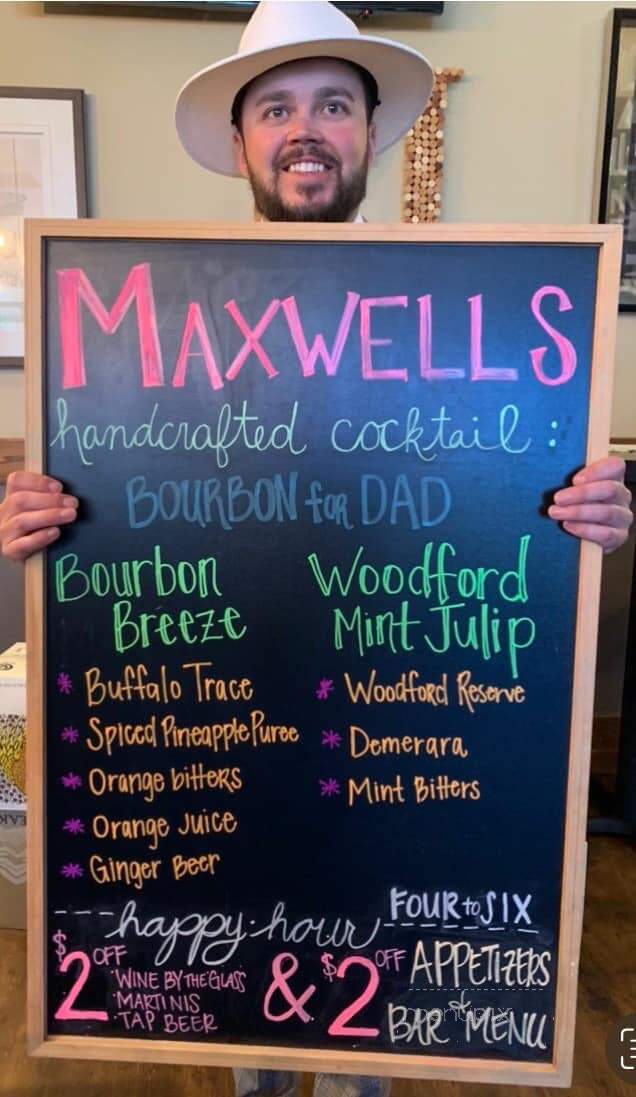 MAXWELLS
handcrafted cocktail:
BOURBON for DAD
Bourbon
Breeze
* Buffalo Trace
* Spiced Pineapple Puree
* Orange bitters
* Orange Juice
* Ginger Beer
Woodford
Mint Julip
* Woodford Reserve
* Demerara
* Mint Bitters
---happy·hour FOUR to SIX
$2 OFF
WINE BY THE GLASS
MARTINIS
TAP BEER
&
$2 OFF APPETIZERS
&
BAR MENU